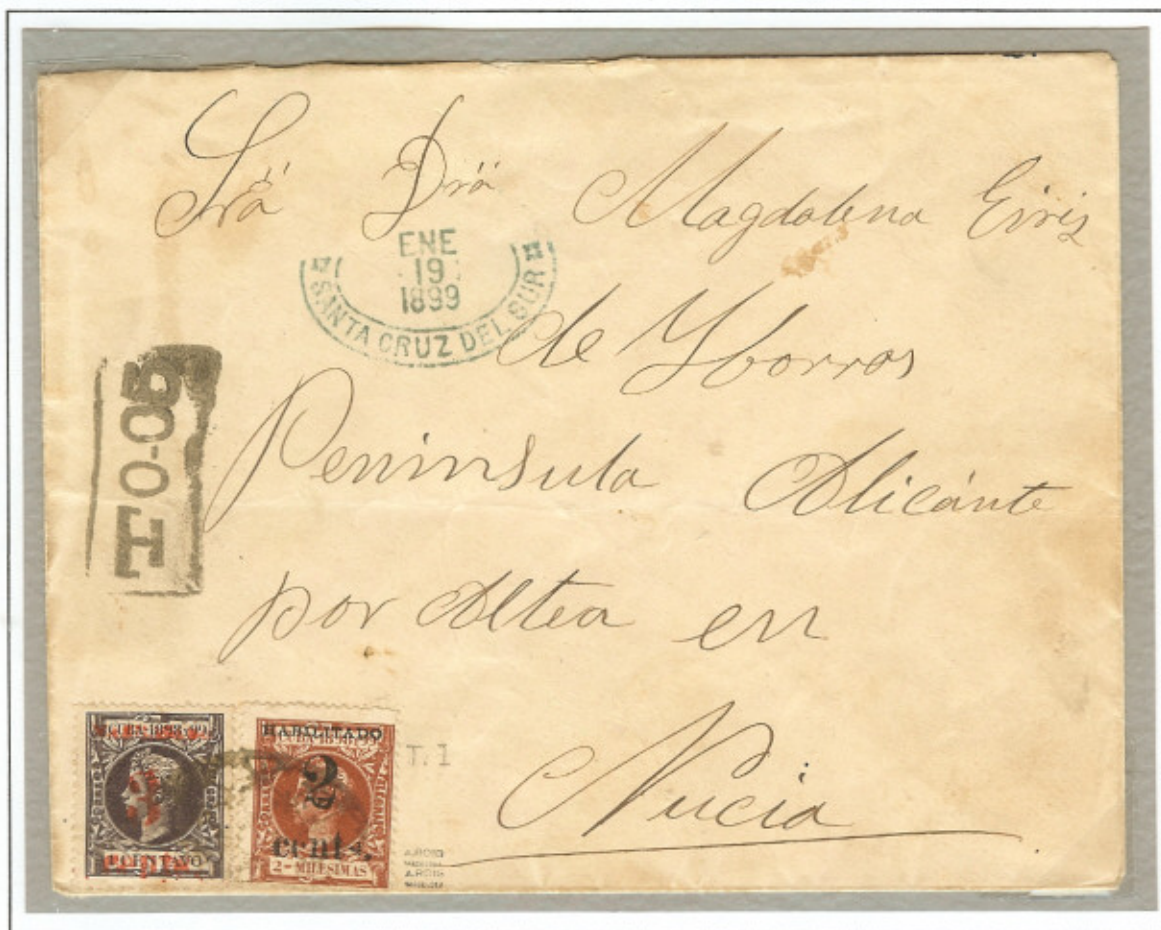 Srä Drä Magdalena Eiriz
ENE
19
1899
SANTA CRUZ DEL SUR
de Yborros
T 0-05
Peninsula Alicánte
por Altea en
Nucia
CUBA 1898-99
3
1 CENTAVO
HABILITADO
CUBA 1898-99
2
cents.
2 - MILESIMAS
T. 1